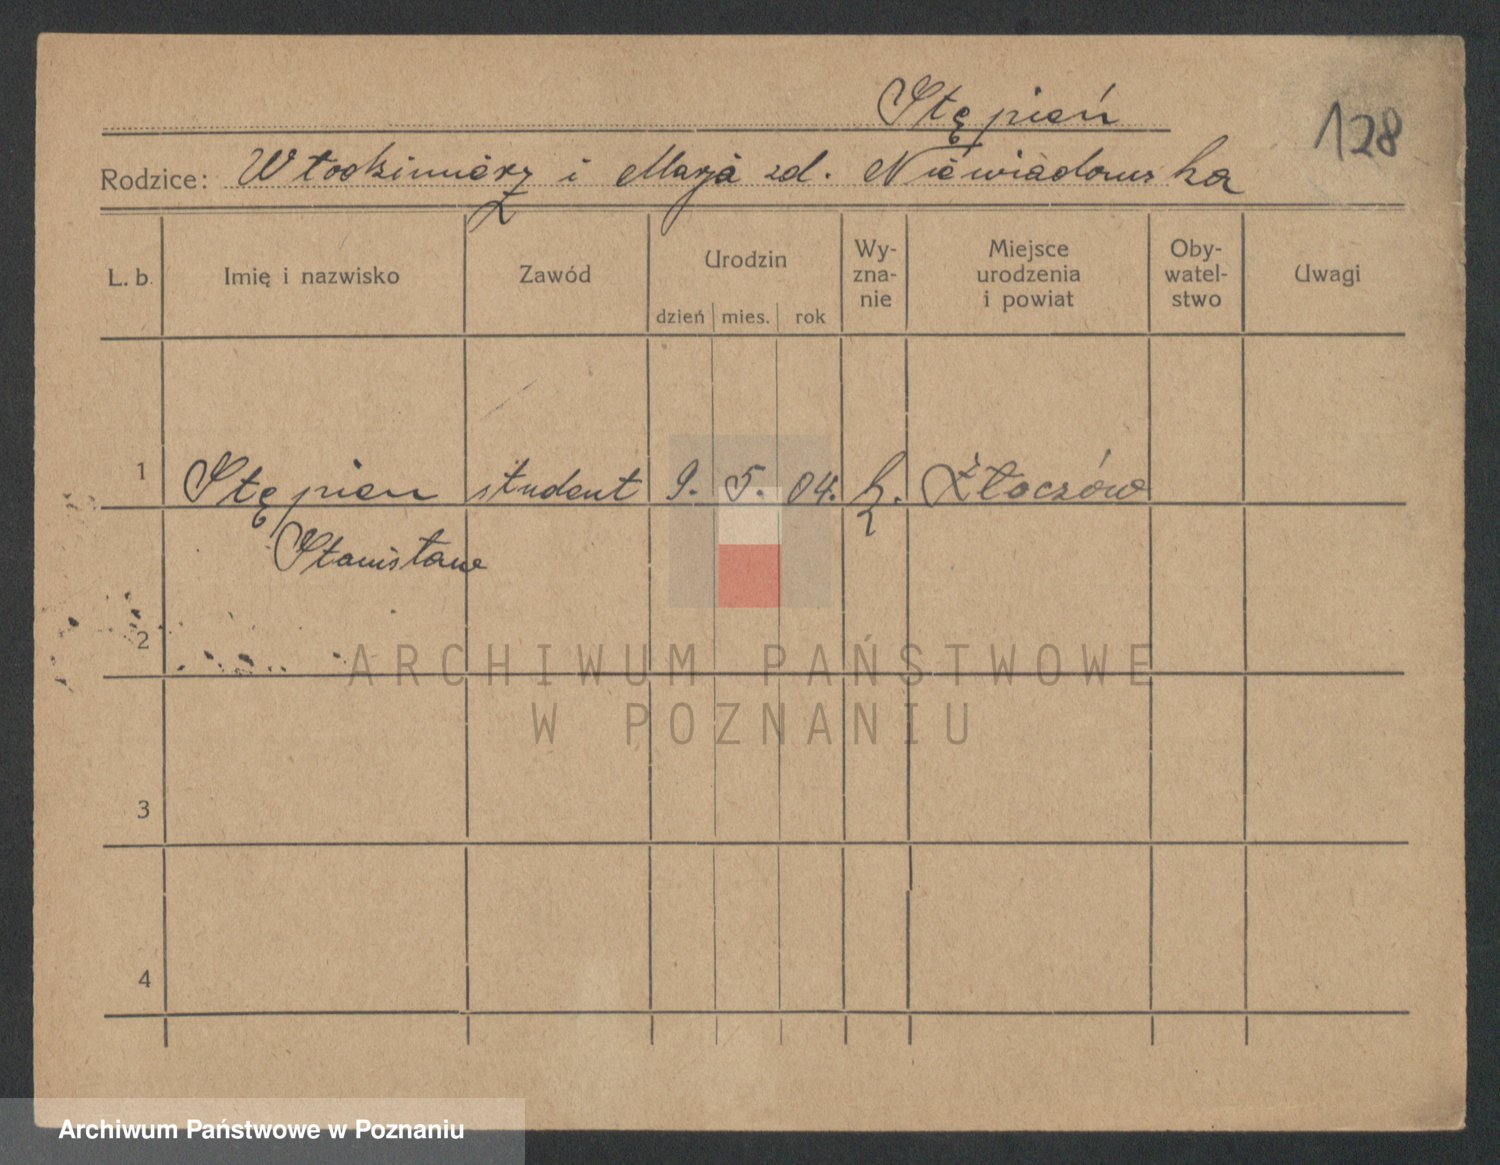 Stępień
128
Rodzice: Włodzimierz i Marja zd. Niewiadomska
L. b. Imię i nazwisko Zawód Urodzin Wy- Miejsce Oby- Uwagi
zna- urodzenia watel-
dzień mies. rok nie i powiat stwo
1 Stępien student 9. 5. 04. Złoczów
Stanisław
2
ARCHIWUM PAŃSTWOWE
W POZNANIU
3
4
Archiwum Państwowe w Poznaniu